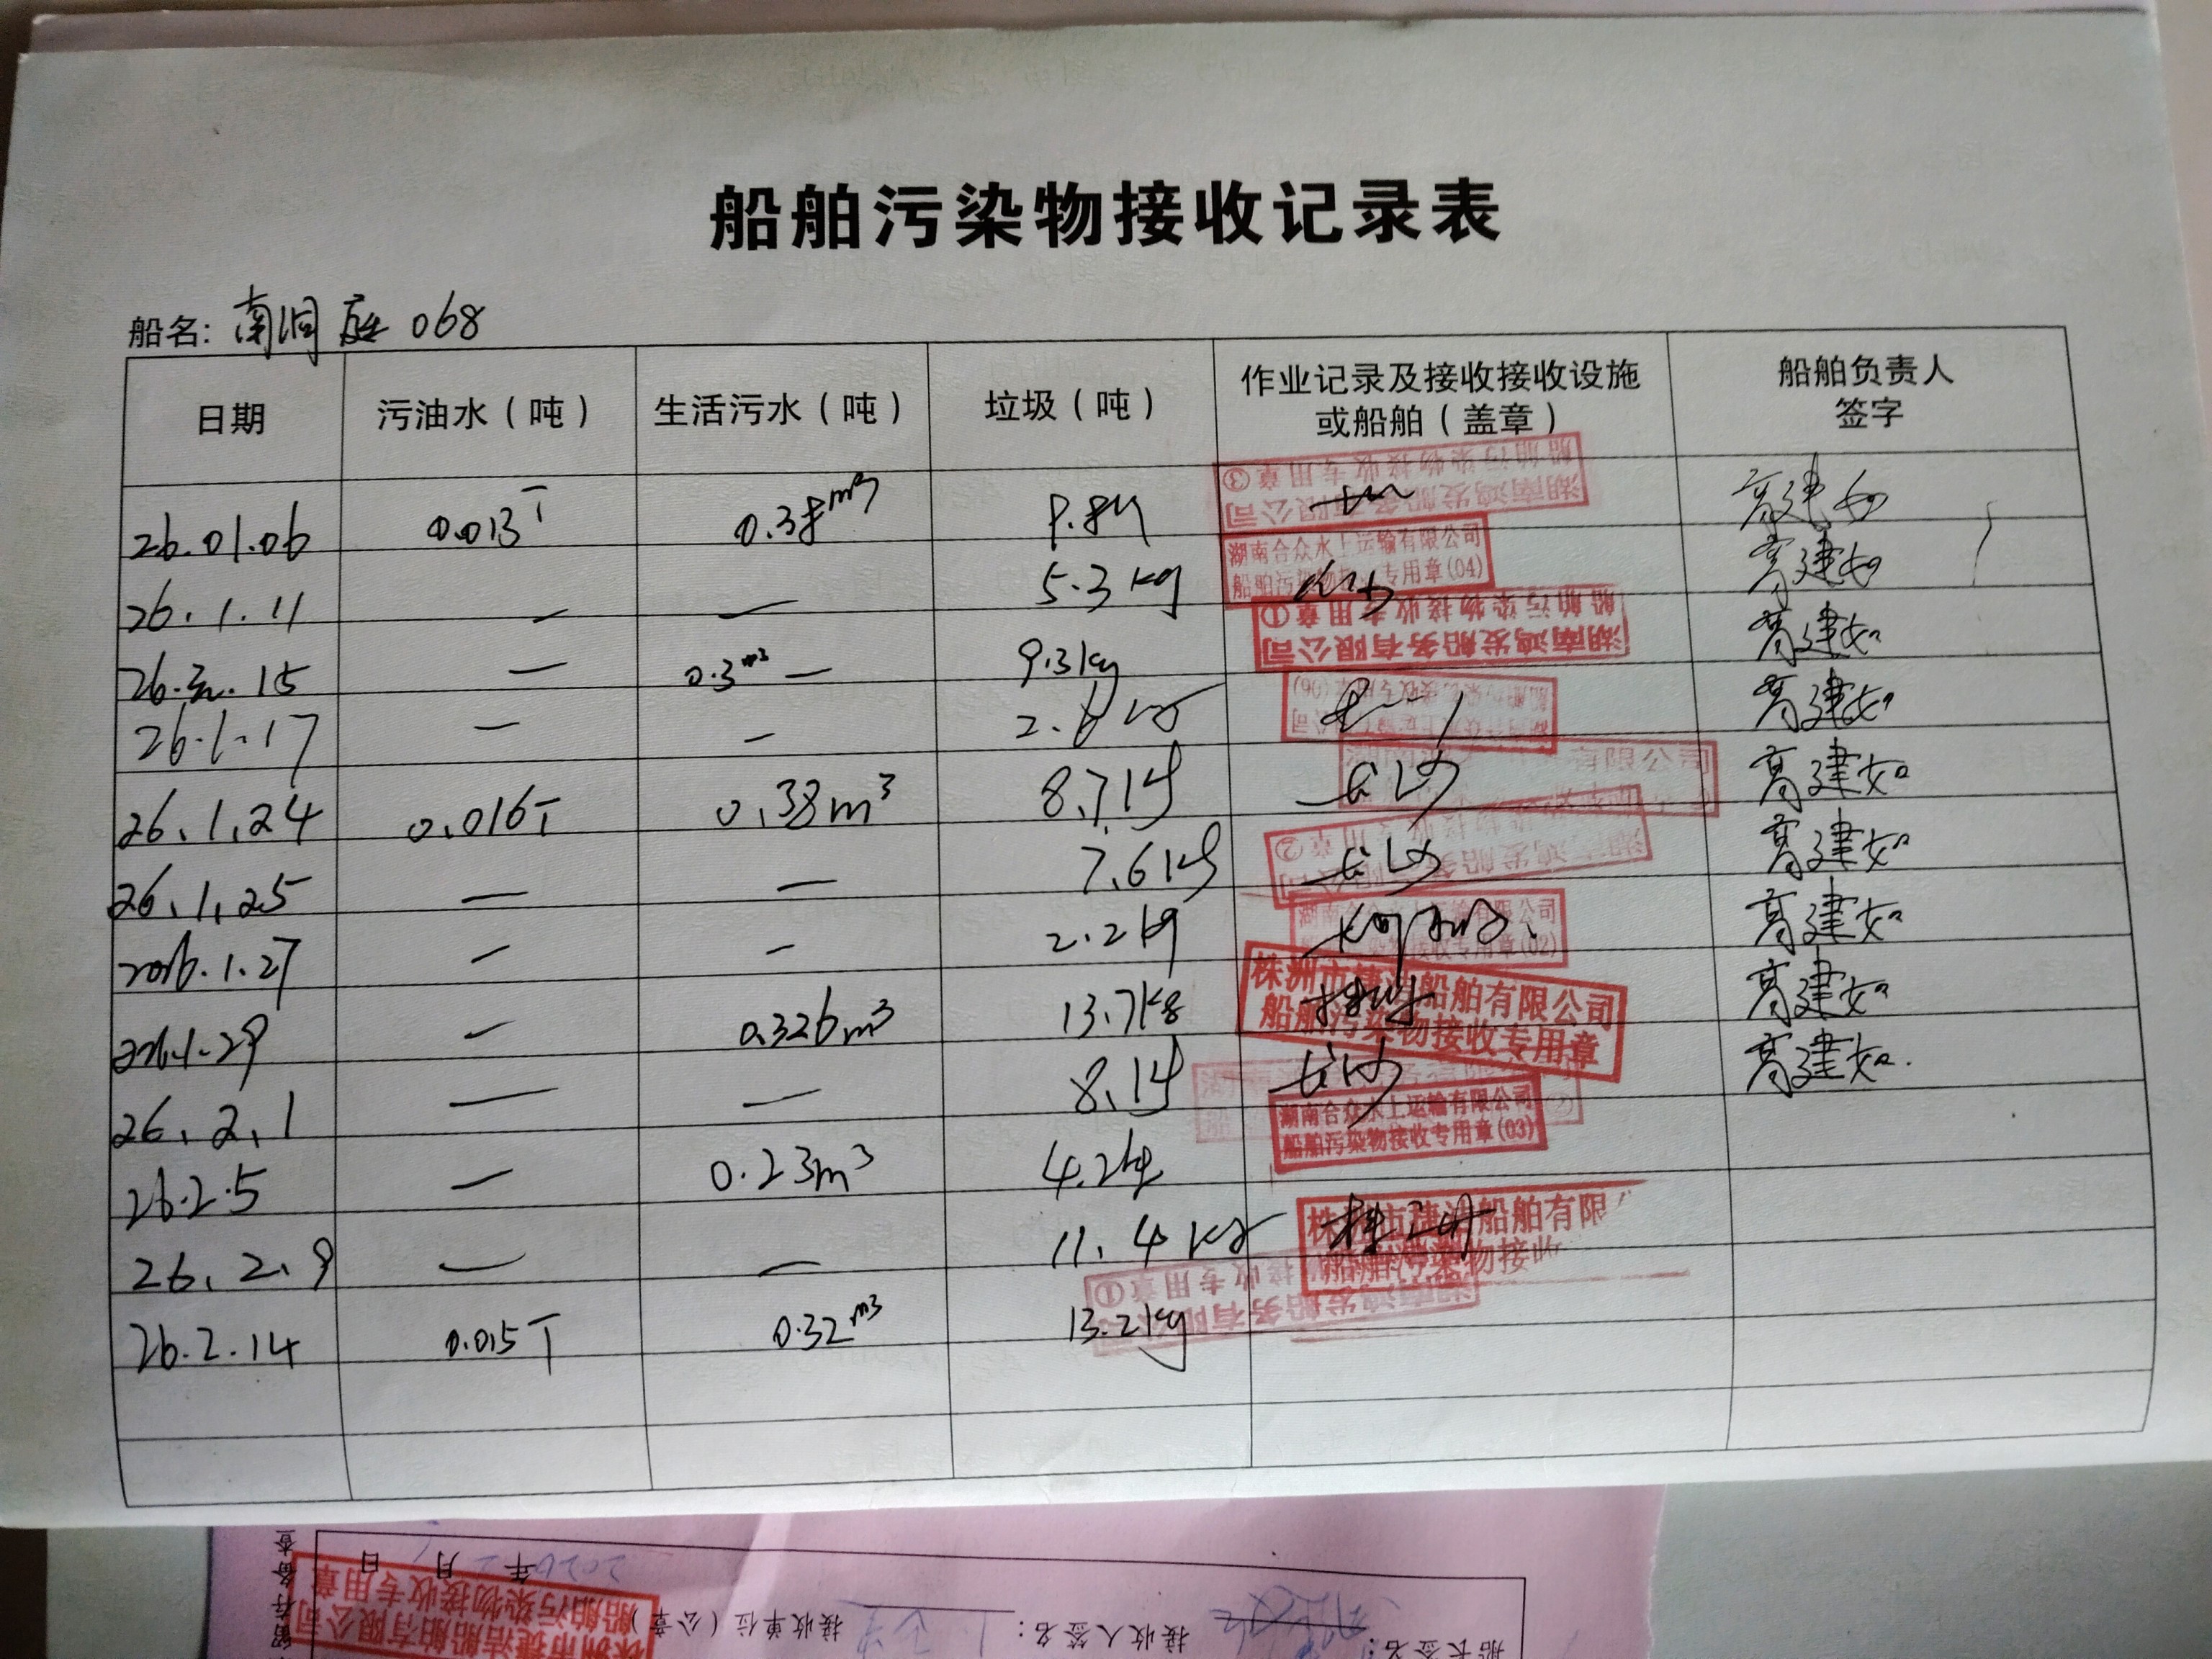 船舶污染物接收记录表
船名: 南洞庭 068
日期 污油水（吨） 生活污水（吨） 垃圾（吨） 作业记录及接收接收设施或船舶（盖章） 船舶负责人签字
26.01.06 0.013T 0.38m3 9.8kg 高建如
湖南鸿发船务有限公司
船舶污染物接收专用章③
26.1.11 — — 5.3kg 高建如
湖南合众水上运输有限公司
船舶污染物接收专用章(04)
26.1.15 — 0.3m3 — 9.3kg 高建如
湖南鸿发船务有限公司
船舶污染物接收专用章①
26.1.17 — — 高建如
26.1.24 0.016T 0.38m3 8.7kg 长沙 高建如
有限公司
26.1.25 — — 7.6kg 长沙 高建如
湖南鸿发船务有限公司
船舶污染物接收专用章②
2026.1.27 — — 2.2kg 高建如
湖南合众水上运输有限公司
船舶污染物接收专用章(02)
2026.1.29 — 0.326m3 13.7kg 株洲 高建如
株洲市捷洁船舶有限公司
船舶污染物接收专用章
26.2.1 — — 8.1kg 长沙 高建如.
26.2.5 — 0.23m3 4.2kg
湖南合众水上运输有限公司
船舶污染物接收专用章(03)
26.2.9 — — 11.4kg 株洲
株洲市捷洁船舶有限
船舶污染物接收
26.2.14 0.015T 0.32m3 13.2kg
湖南鸿发船务有限公司
接收专用章①
船长签名: 接收人签名: 接收单位（公章）
年 月 日
株洲市捷洁船舶有限公司
船舶污染物接收专用章
留存备查